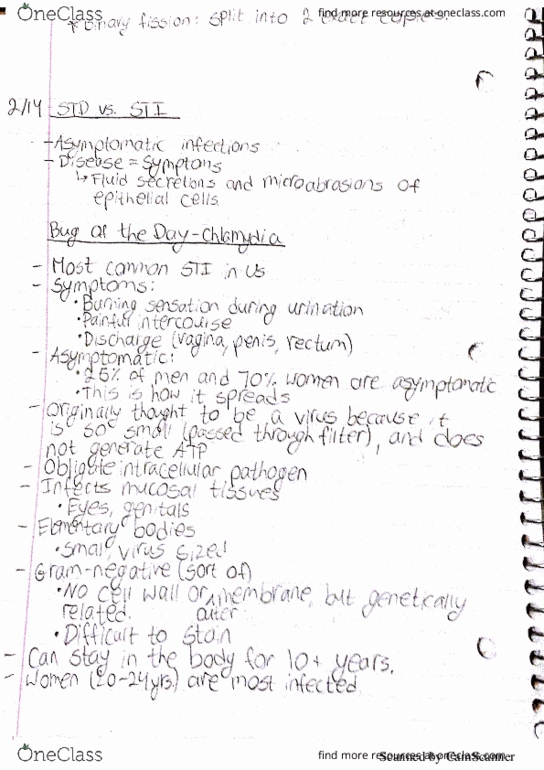 OneClass find more resources at oneclass.com
* Binary fission: split into 2 exact copies.
2/14 STD vs. STI
- Asymptomatic infections
- Disease = Symptoms
↳ Fluid secretions and microabrasions of
epithelial cells
Bug of the Day - Chlamydia
- Most common STI in US
- Symptoms:
• Burning sensation during urination
• Painful intercourse
• Discharge (vagina, penis, rectum)
- Asymptomatic:
• 25% of men and 70% women are asymptomatic
• This is how it spreads
- Originally thought to be a virus because it
is soo small (passed through filter), and does
not generate ATP
- Obligate intracellular pathogen
- Infects mucosal tissues
• Eyes, genitals
- Elementary bodies
• Small, virus sized
- Gram-negative (sort of)
• No cell wall or outer membrane, but genetically
related.
• Difficult to stain
- Can stay in the body for 10+ years.
- Women (20-24yrs.) are most infected.
OneClass find more resources at oneclass.com
Scanned by CamScanner